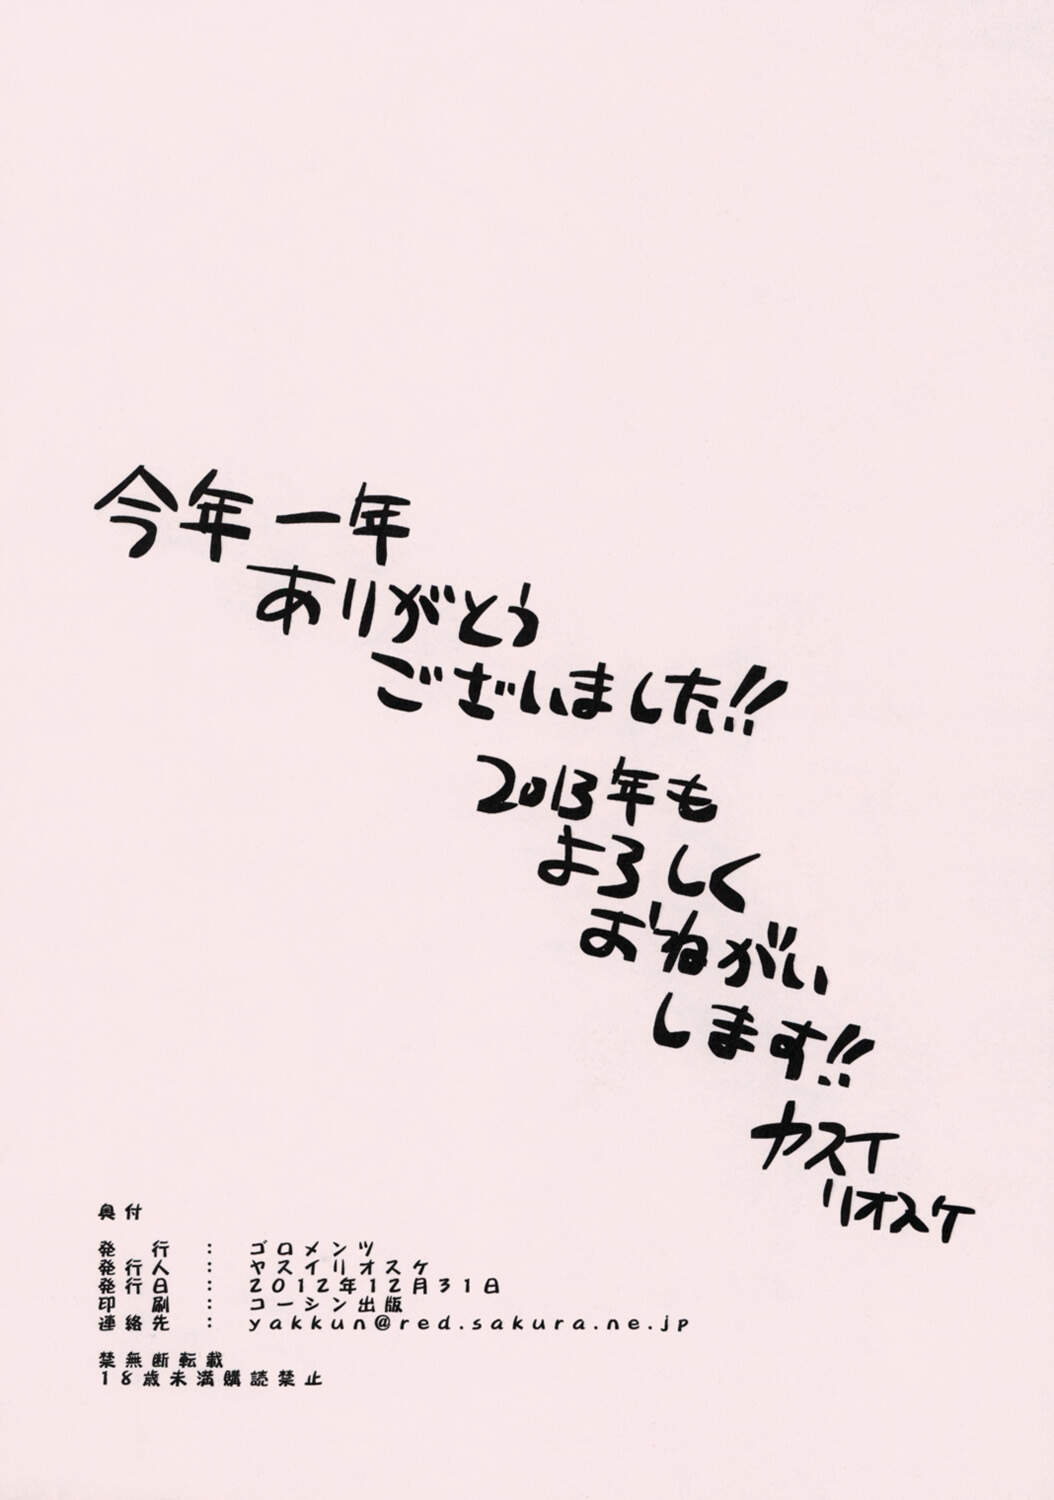 今年一年
ありがとう
ございました!!
2013年も
よろしく
おねがい
します!!
ヤスイ
リオスケ
奥付
発行：ゴロメンツ
発行人：ヤスイリオスケ
発行日：2012年12月31日
印刷：コーシン出版
連絡先：yakkun@red.sakura.ne.jp
禁無断転載
18歳未満購読禁止